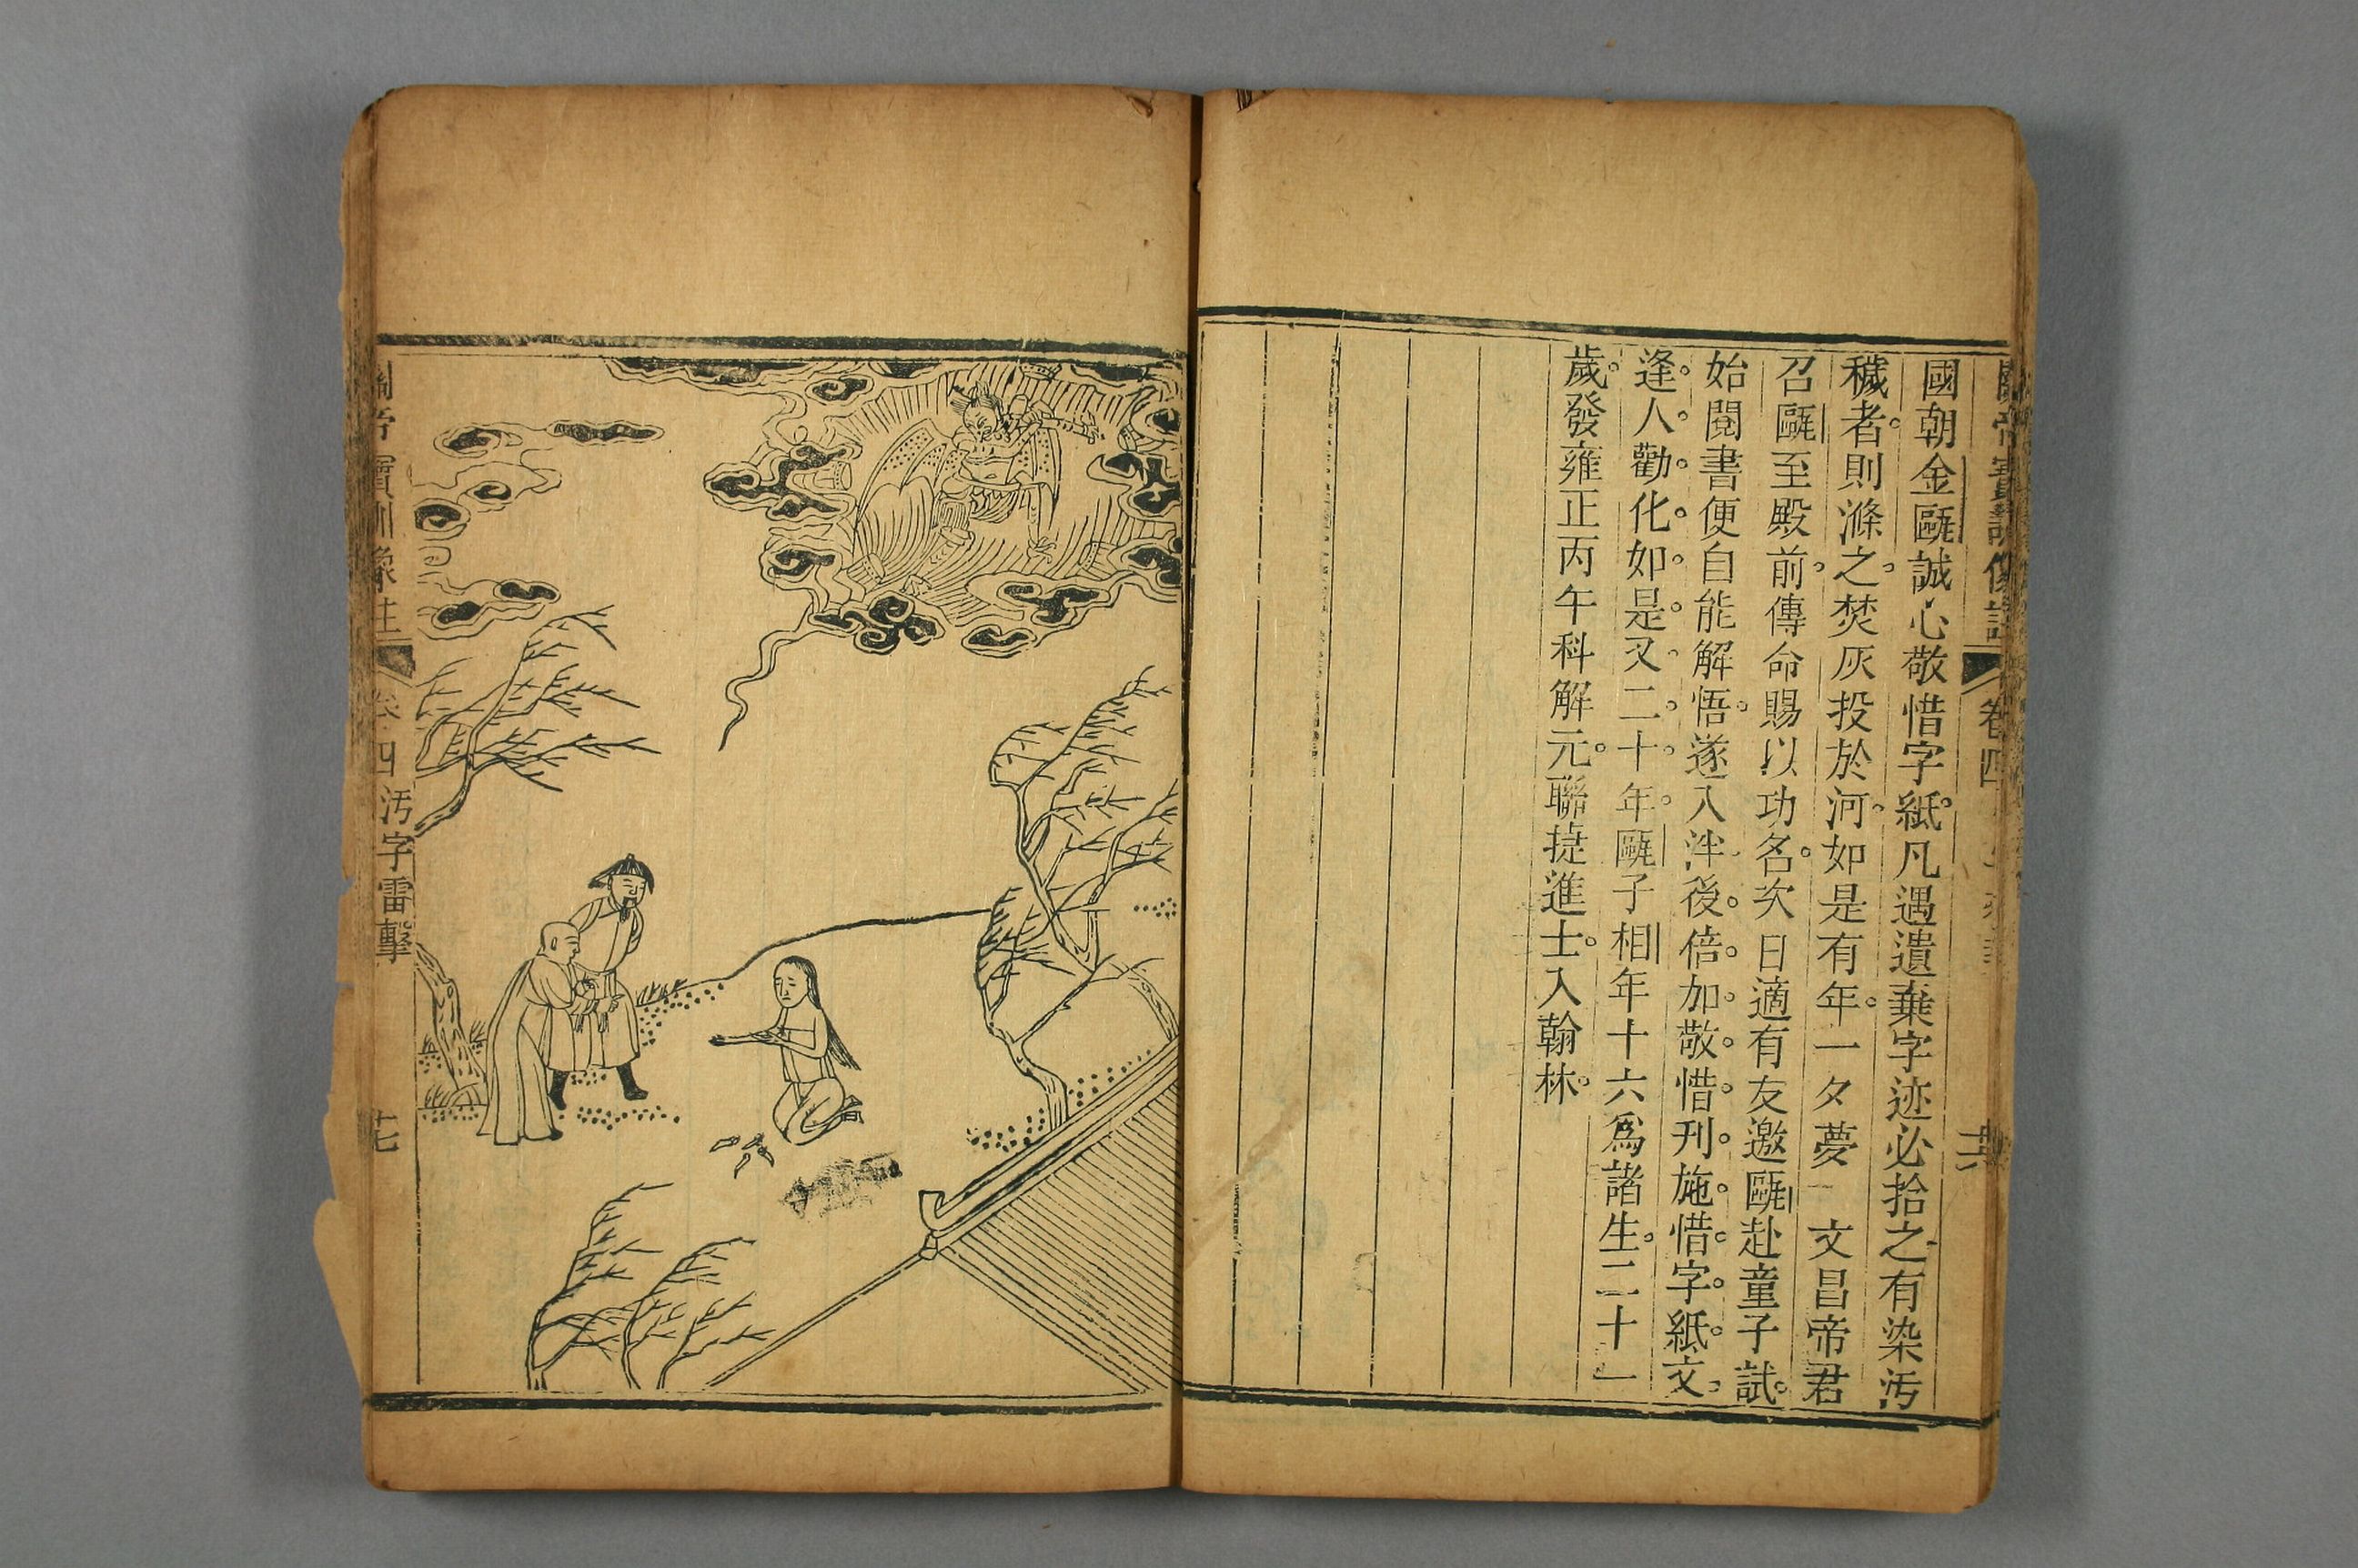 國朝金甌誠心敬惜字紙。凡遇遺棄字迹必拾之有染汚
穢者。則滌之。焚灰投於河。如是有年。一夕夢 文昌帝君
召甌至殿前。傳命賜以功名。次日適有友邀甌赴童子試。
始閱書便自能解悟。遂入泮後。倍。加。敬。惜。刊。施。惜。字。紙。文。
逢。人。勸。化。如。是。又。二。十。年。甌子相年十六爲諸生。二十一
歲。發雍正丙午科解元。聯捷進士。入翰林。
卷四
關帝寶訓像註 卷四 汚字雷擊 十七